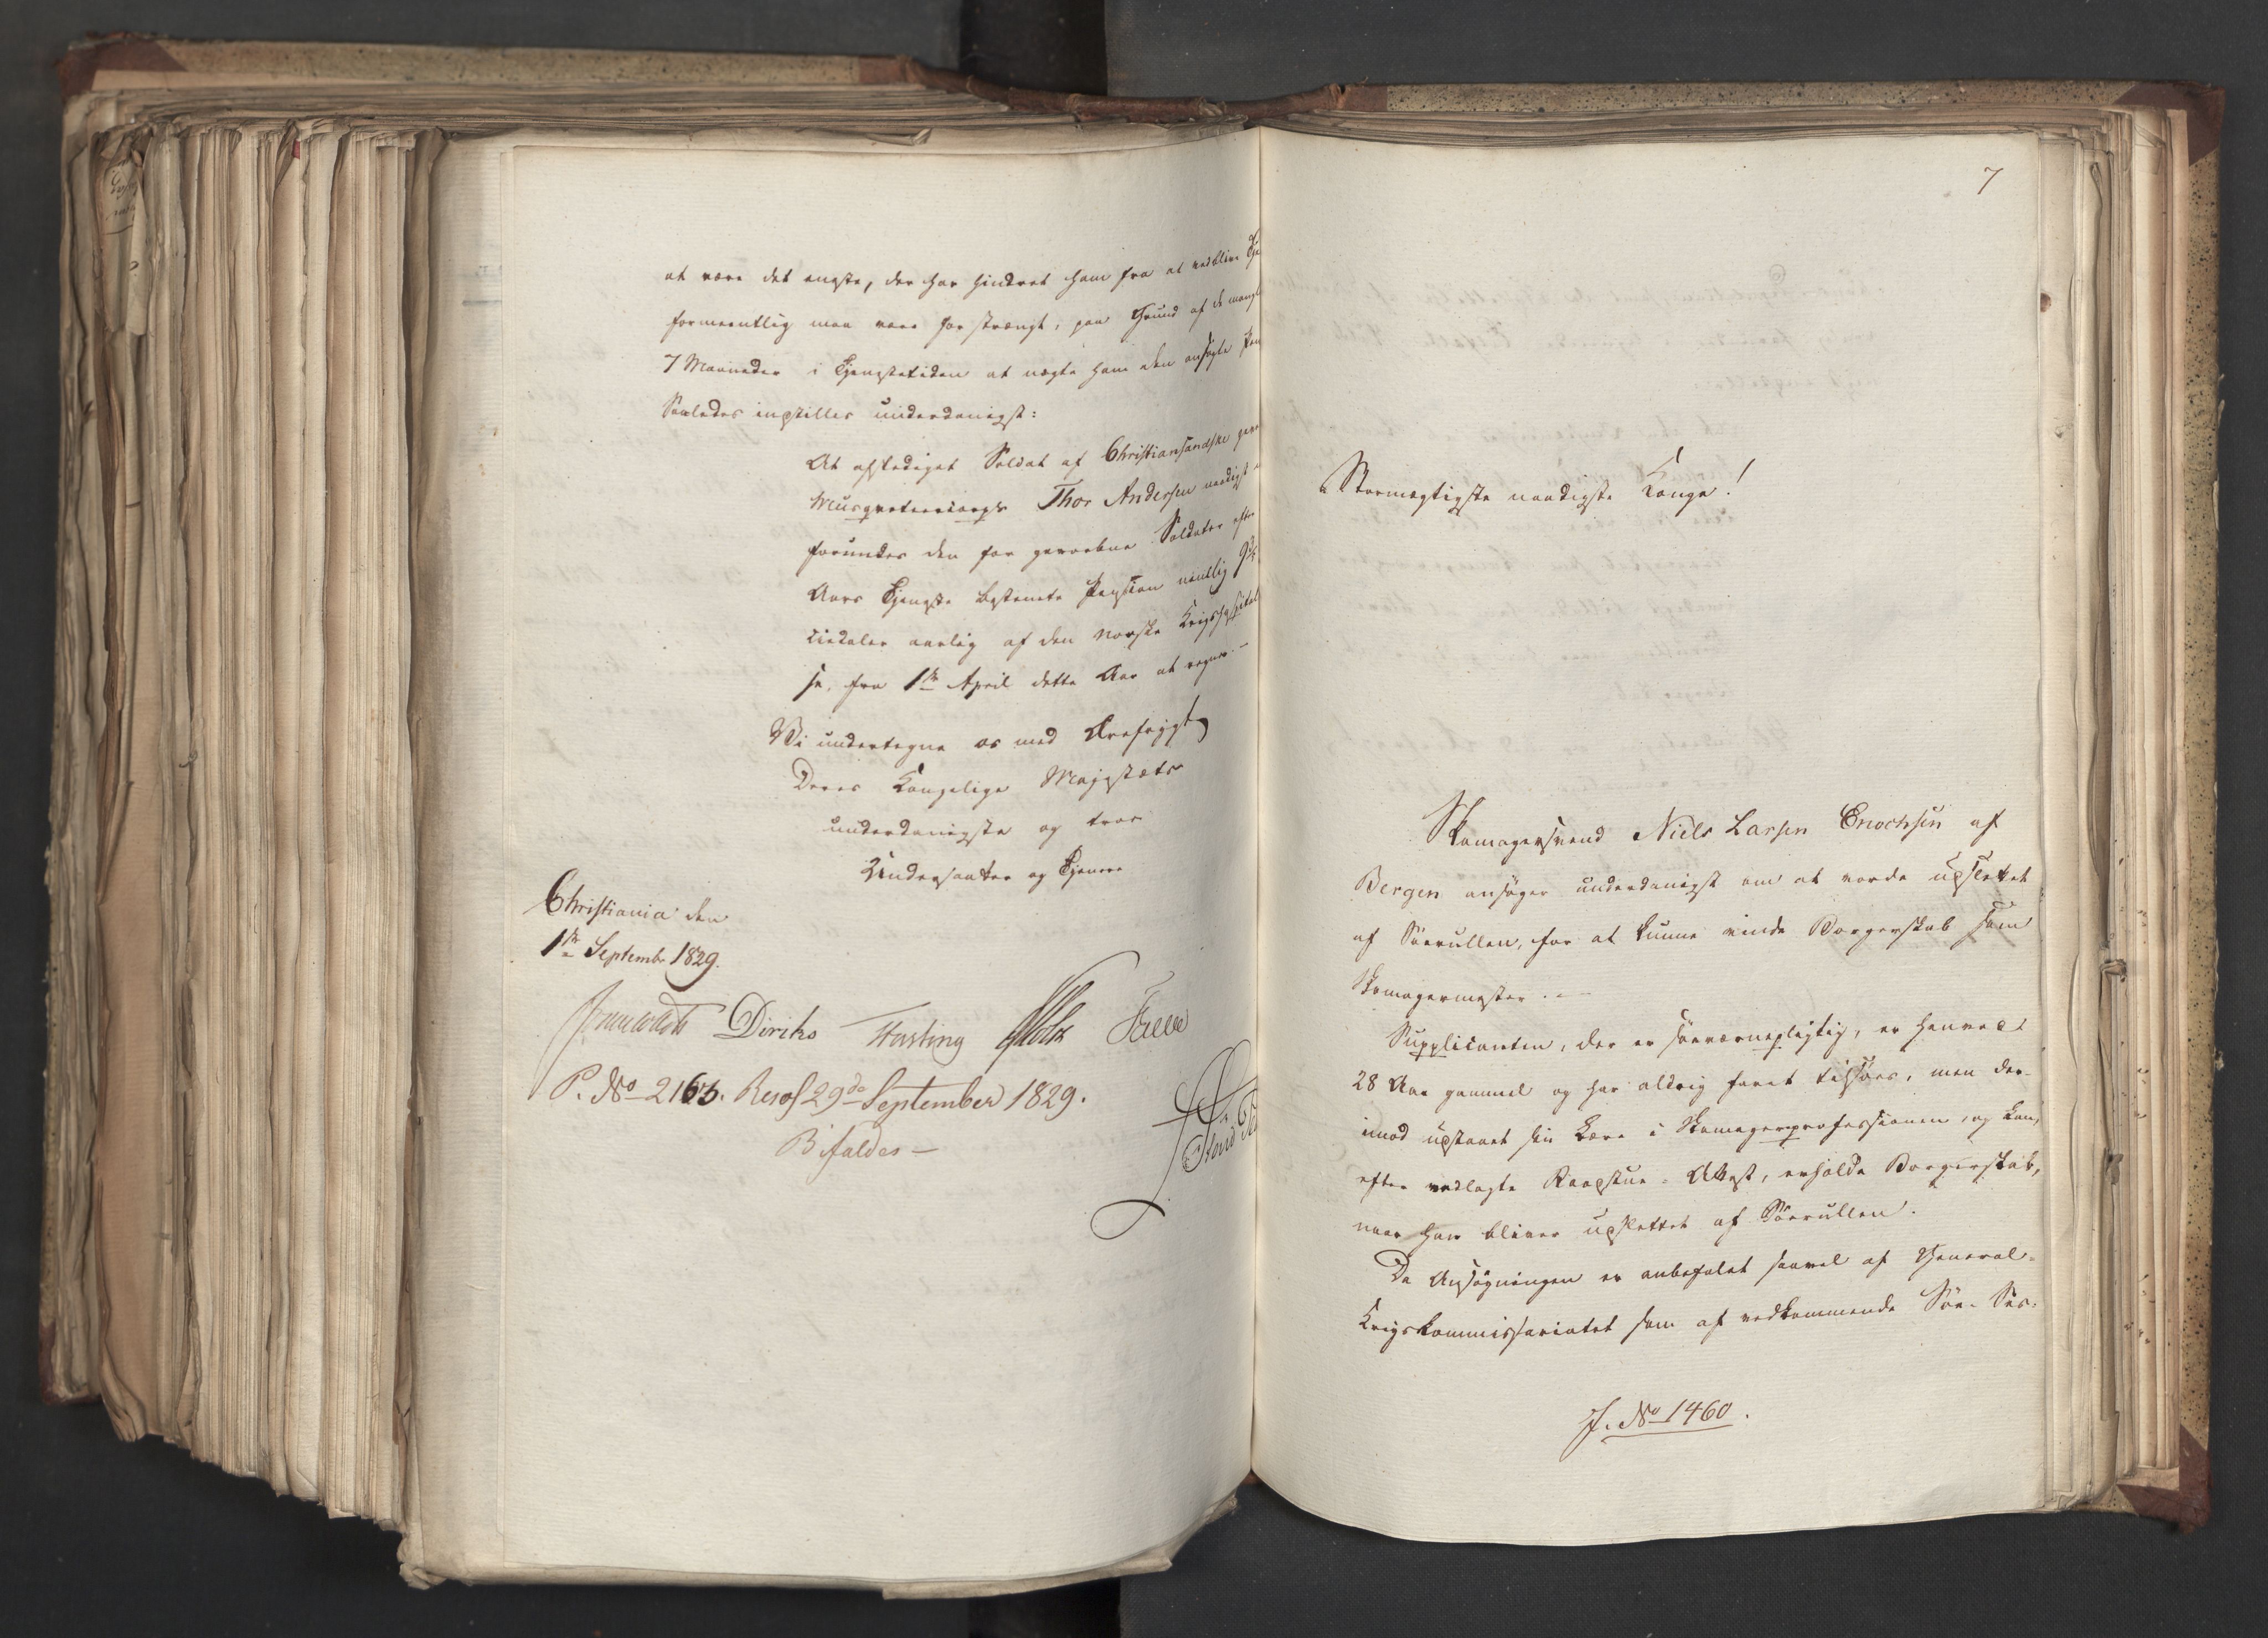 at være det eneste, der har hindret ham fra at vedblive
formeentlig maa være for strængt, paa Grund af de
7 Maaneder i Tjenestetiden at negte ham den ansøgte
Saaledes indstilles underdanigst:
At afskediget Soldat af Christiansandske
Musqueteercorps Thor Andersen naadigst
forundes den for gevorbne Soldater efter
Aars Tjeneste bestemte Pension nemlig
ciedaler aarlig af den norske
se, fra 1ste April dette Aar at regne.—
Vi undertegne os med Ærefrygt
Deres Kongelige Majestæts
underdanigste og troe
Undersaatter og Tjenere
Christiania den
1ste Septembr 1829.
Diriks Fasting Holst
P. No 2163. Resol 29de September 1829.
Bifaldes —
7
Stormægtigste naadigste Konge!
Skomagersvend Niels Larsen Enochsen af
Bergen ansøger underdanigst om at vorde udslettet
af Søerullen, for at kunne vinde Borgerskab som
Skomagermester.—
Supplicanten, der er søeværnepligtig, er henved
28 Aar gammel og har aldrig faret tilsøes, men der-
imod udstaaet sin Lære i Skomagerprofessionen, og kan,
efter vedlagte Raadstue-Attest, erholde Borgerskab,
naar han bliver udslettet af Søerullen.
Da Ansøgningen er anbefalet saavel af General-
Krigskommissariatet som af vedkommende Søe-Ses-
J. No 1460.